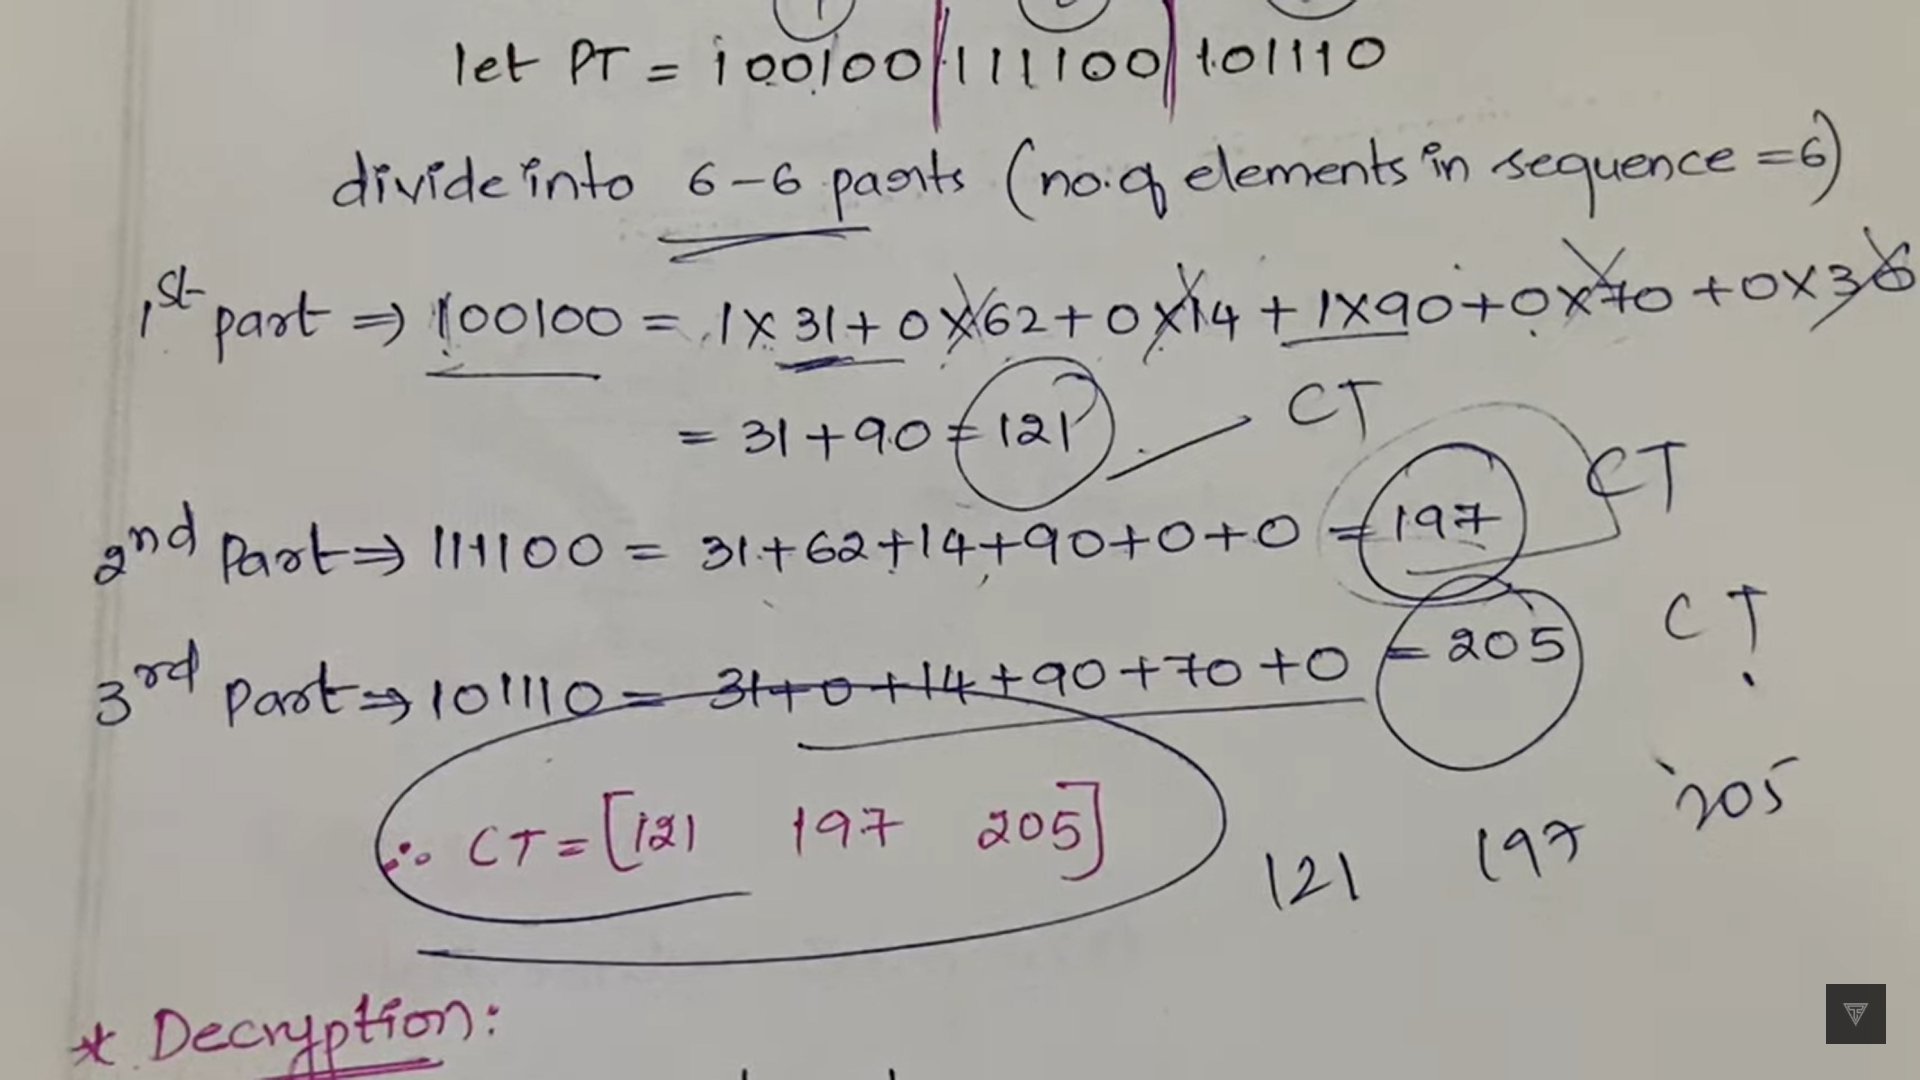 let PT = 100100 | 111100 | 101110
divide into 6-6 parts (no. of elements in sequence = 6)
1st part ⇒ 100100 = 1 x 31 + 0 x 62 + 0 x 14 + 1 x 90 + 0 x 70 + 0 x 36
= 31 + 90 = 121 CT
2nd Part ⇒ 111100 = 31 + 62 + 14 + 90 + 0 + 0 = 197 CT
3rd Part ⇒ 101110 = 31 + 0 + 14 + 90 + 70 + 0 = 205 CT
∴ CT = [121 197 205]
121 197 205
* Decryption: